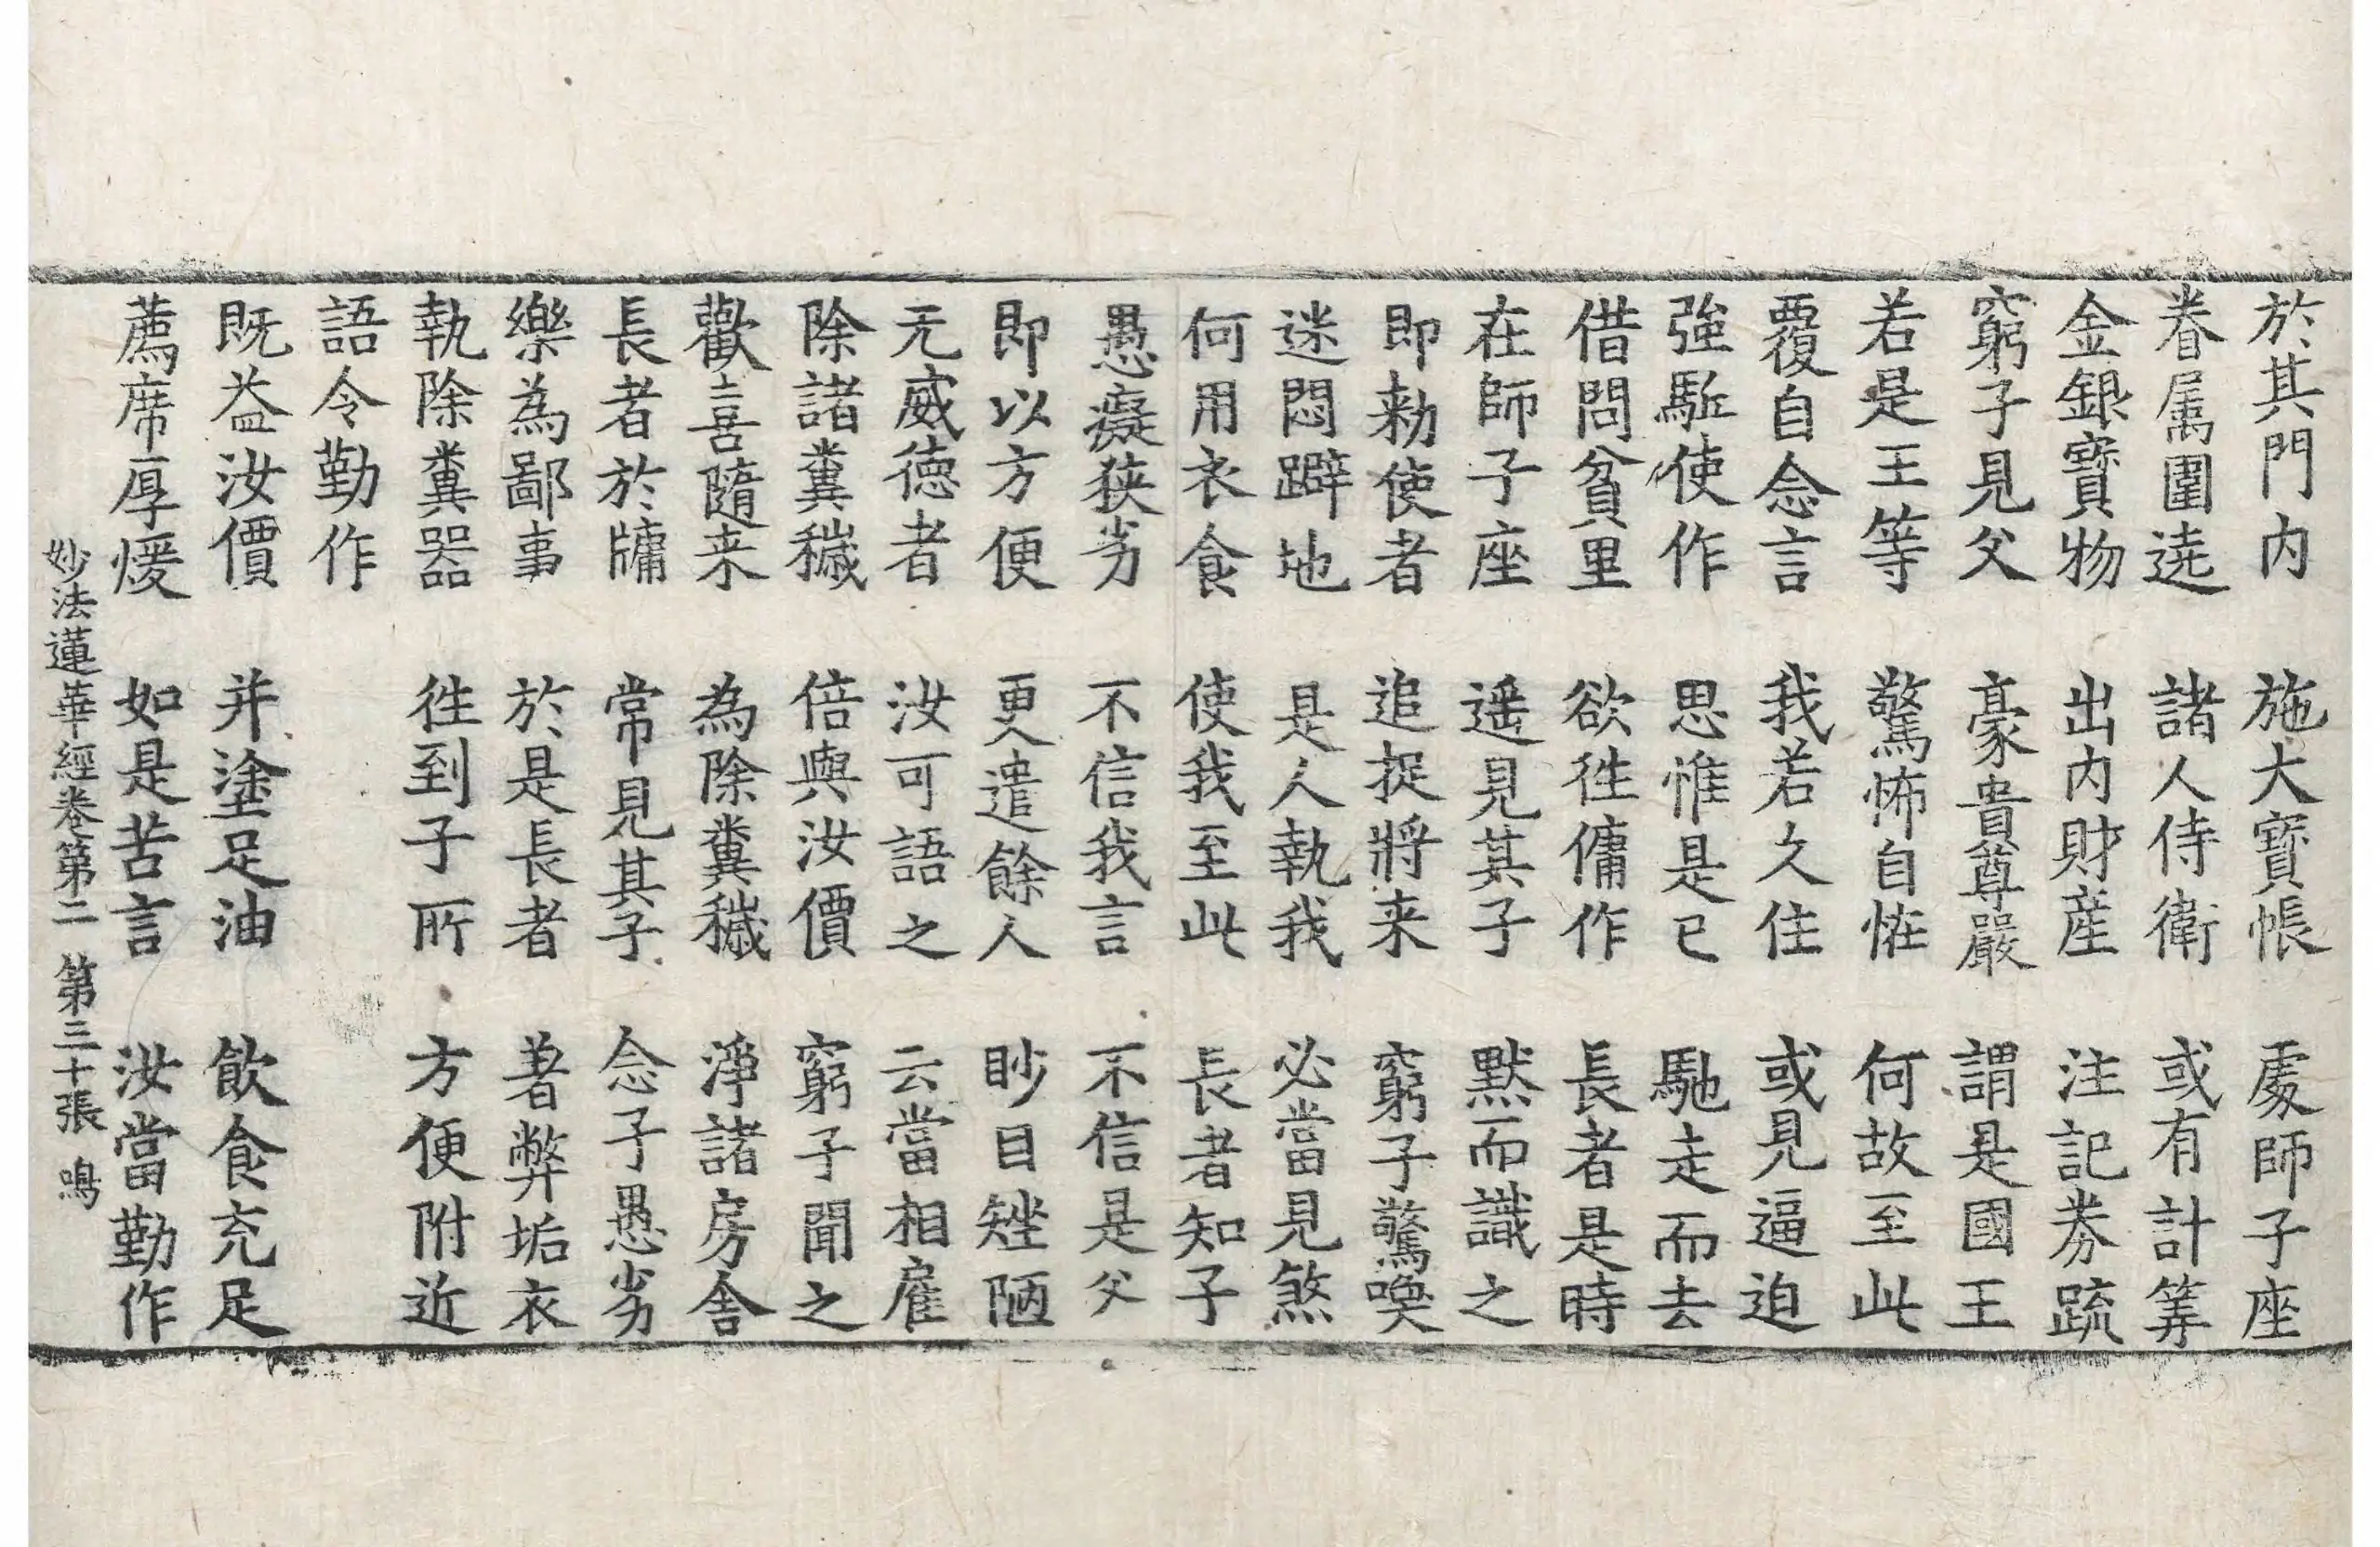 於其門内　施大寳帳　處師子座
眷属圍遶　諸人侍衛　或有計筭
金銀寳物　出内財産　注記券䟽
窮子見父　豪貴尊嚴　謂是國王
若是王等　驚怖自恠　何故至此
覆自念言　我若久住　或見逼迫
強駈使作　思惟是已　馳走而去
借問貧里　欲徃傭作　長者是時
在師子座　遥見其子　默而識之
即勑使者　追捉將来　窮子驚喚
迷悶躃地　是人執我　必當見煞
何用衣食　使我至此　長者知子
愚癡狭劣　不信我言　不信是父
即以方便　更遣餘人　眇目矬陋
无威德者　汝可語之　云當相雇
除諸糞穢　倍與汝價　窮子聞之
歡喜隨来　為除糞穢　淨諸房舍
長者於牗　常見其子　念子愚劣
樂為鄙事　於是長者　著弊垢衣
執除糞器　徃到子所　方便附近
語令勤作
既益汝價　并塗足油　飲食充足
薦席厚煖　如是苦言　汝當勤作
妙法蓮華經卷第二　第三十張　鳴